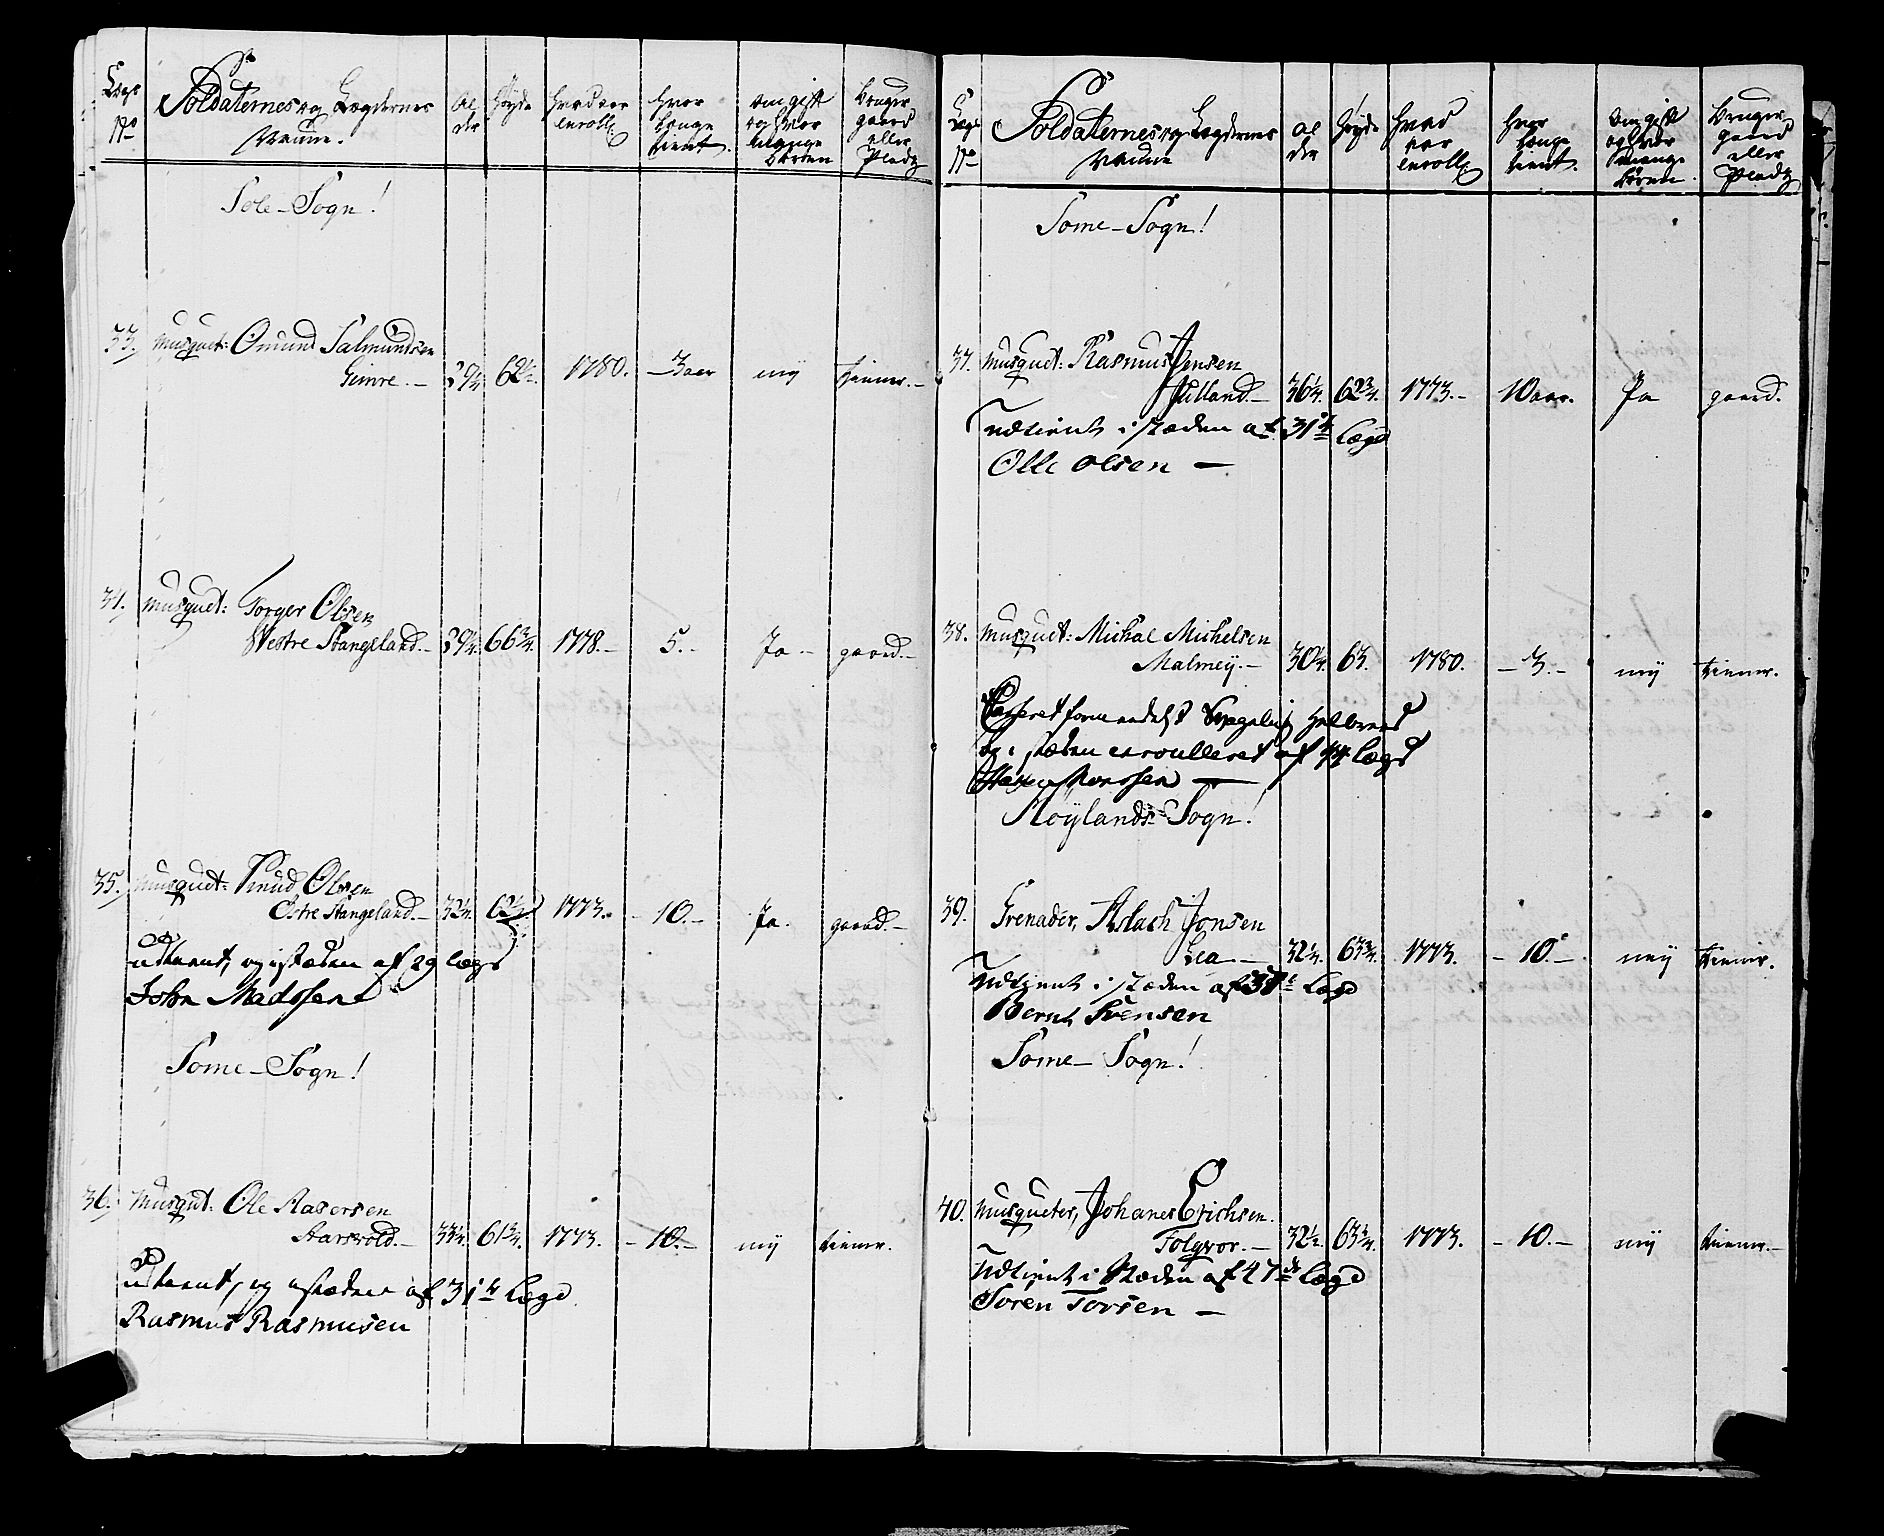 Lægs No
Soldaternes og Lægdernes Nafne.
Alder
Høyde
hvad aar enroll:
hvor længe tient.
om gift og hvor mange børen
bruger gaard eller Pladz
Sole-Sogn!
33. Musquet: Omund Salmundsen
Gimre.- 29¼ 62½. 1780. -3 aar nÿ tiener.-
34. Musquet: Torger Olsen
Westre Stangeland.- 29¼. 66¾ 1778.- 5.- Ja - gaard.-
35. Musquet: Knud Olsen
Østre Stangeland.- 32¼. 62½ 1773. - 10.- Ja. gaard.-
udtient, og i stæden af 29 lægd
John Madssen
Some-Sogn!
36. Musqut: Ole Aasersen
Aarsvold.- 33¼. 61¾. 1773. - 10.- nÿ tiener.
udtient, og i stæden af 31te Lægd
Rasmus Rasmusen
Lægs No
Soldaternes og Lægdernes Nafne
Alder
Høyde
hvad aar enroll:
hvor længe tient.
om gift og hvor mange børen
bruger gaard eller Pladz
Some-Sogn!
37. Musquet: Rasmus Jensen
Jilland.- 36¼. 62¾. 1773.- 10 aar. Ja gaard.
Udtient i stæden af 31te Lægd
Olle Olsen -
38. Musquet: Michal Michelsen
Malmeÿ.- 30¼. 63. 1780. - 3.- nÿ tiener.
Casseret formedelst Svagelig Helbred
og i stæden enroulleret af 44 Lægd
Høylands-Sogn!
39. Grenader, Aslach Jonsen
Lea.- 32½. 63¾. 1773. - 10.- neÿ tiener.
Udtient i stæden af 37te Lægd
Bernt Svensen
Some-Sogn!
40. Musqueter, Johanes Erichsen.
Folgvor.- 32½. 63¾. 1773. - 10.- nÿ tiener.-
Udtient i stæden af 47de Lægd
Søren Torsen -